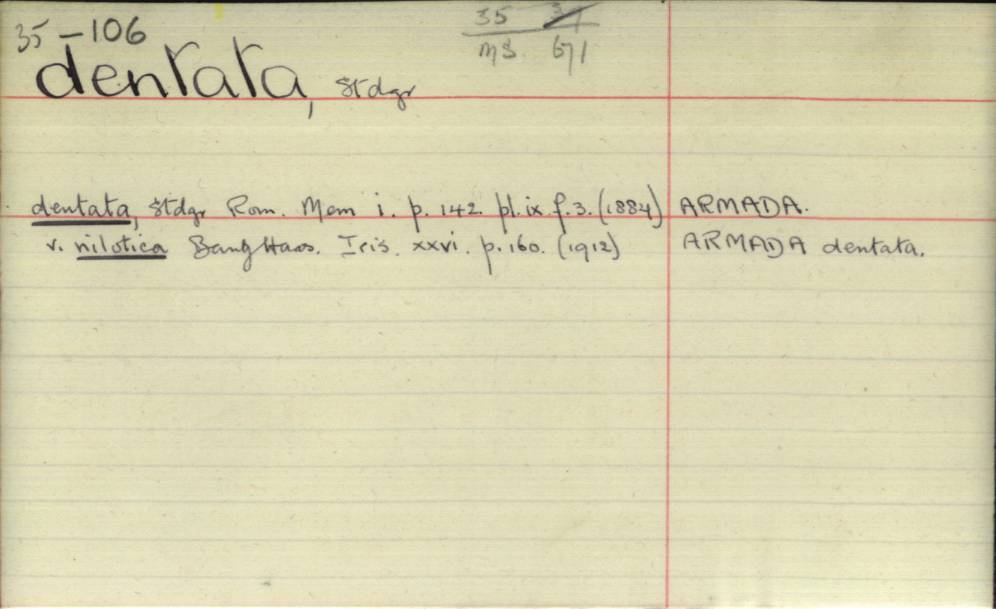 35-106
35 37
MS. 671
dentata, Stdgr
dentata, Stdgr Rom. Mem i. p. 142. pl. ix. f. 3. (1884) ARMADA.
v. nilotica Bang Haas. Iris. xxvi. p. 160. (1912) ARMADA dentata.